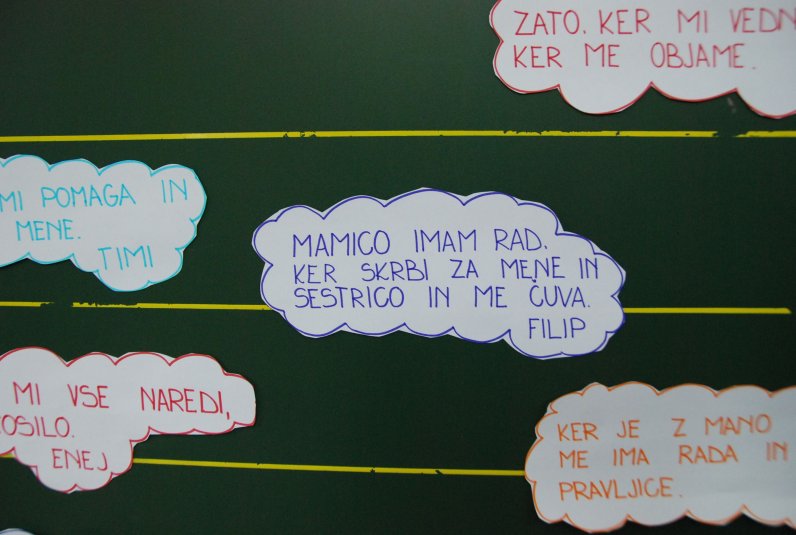 ZATO, KER MI VEDN
KER ME OBJAME.
MI POMAGA IN
MENE.
TIMI
MAMICO IMAM RAD,
KER SKRBI ZA MENE IN
SESTRICO IN ME ČUVA.
FILIP
MI VSE NAREDI,
OSILO.
ENEJ
KER JE Z MANO
ME IMA RADA IN
PRAVLJICE.